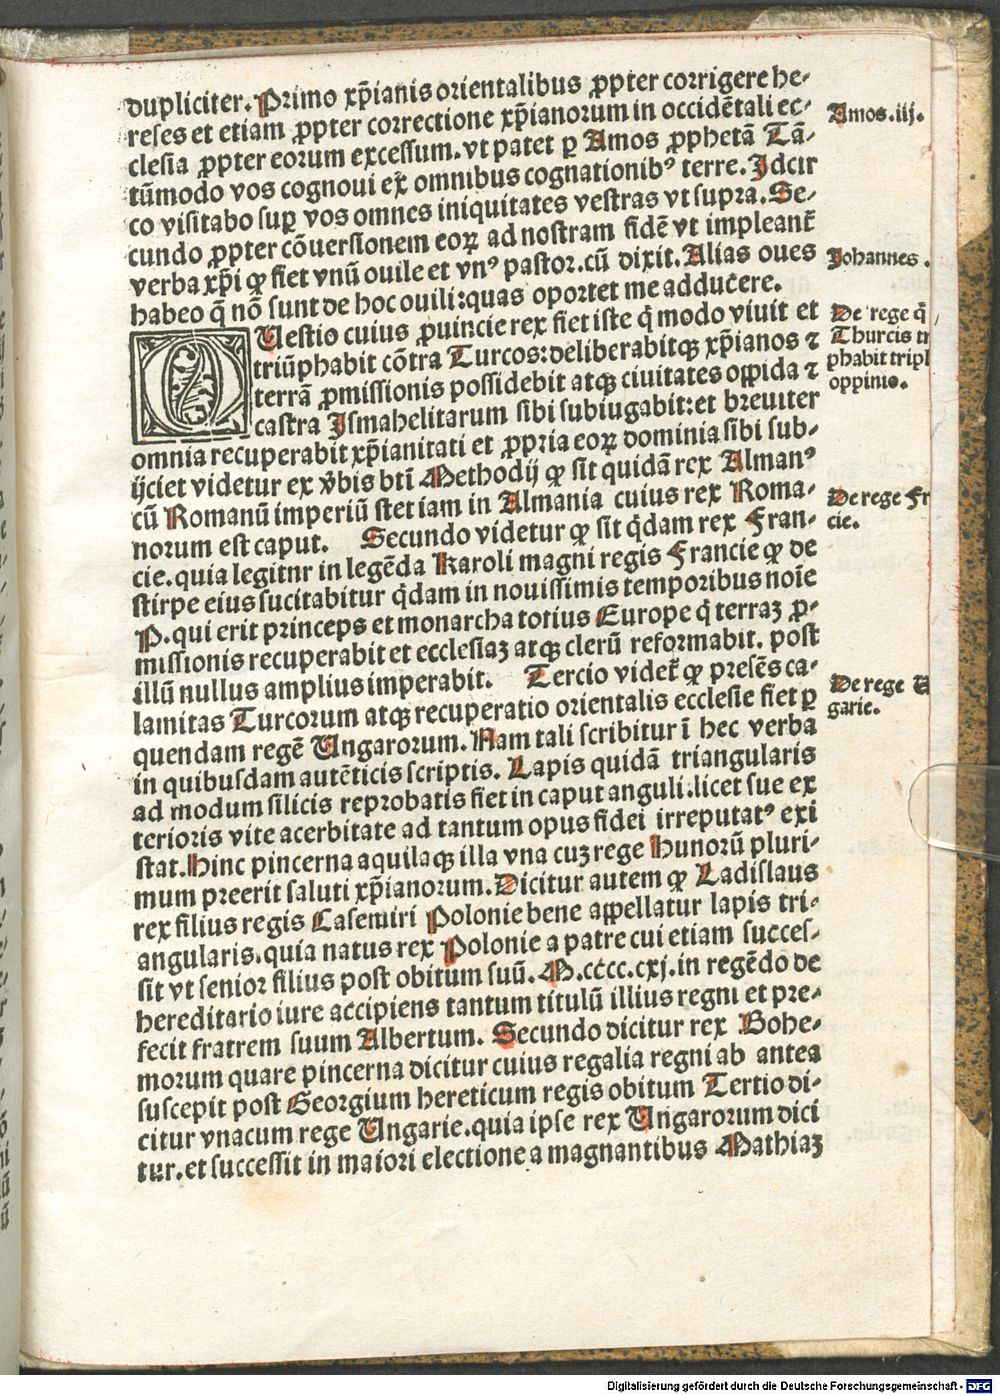 dupliciter. Primo xp̄ianis orientalibus ꝓpter corrigere he-
reses et etiam ꝓpter correctione xp̄ianorum in occidētali ec-
clesia ꝓpter eorum excessum. vt patet ꝑ Amos ꝓphetā Tā-
tūmodo vos cognoui ex̄ omnibus cognationibꝰ terre. Idcir
co visitabo suꝑ vos omnes iniquitates vestras vt supra. Se-
cundo ꝓpter cōuersionem eoꝝ ad nostram fidē vt impleant᷑
verba xp̄i ꝙ fiet vnū ouile et vnꝰ pastor. cū dixit. Alias oues
habeo q̄ nō sunt de hoc ouili: quas oportet me adducere.
QUestio cuius ꝓuincie rex fiet iste q̄ modo viuit et
triūphabit cōtra Turcos: deliberabitqꝫ xp̄ianos ⁊
terrā ꝓmissionis possidebit atqꝫ ciuitates oppida ⁊
castra Ismahelitarum sibi subiugabit: et breuiter
omnia recuperabit xp̄ianitati et ꝓpria eoꝝ dominia sibi sub-
ijciet videtur ex v̄bis btī Methodij ꝙ sit quidā rex Almanꝰ
cū Romanū imperiū stet iam in Almania cuius rex Roma-
norum est caput. Secundo videtur ꝙ sit q̄dam rex Fran-
cie. quia legitnr in legēda Karoli magni regis Francie ꝙ de
stirpe eius sucitabitur q̄dam in nouissimis temporibus noīe
P. qui erit princeps et monarcha totius Europe q̄ terraꝫ ꝓ-
missionis recuperabit et ecclesiaꝫ atqꝫ clerū reformabit. post
illū nullus amplius imperabit. Tercio videt᷑ ꝙ presēs ca-
lamitas Turcorum atqꝫ recuperatio orientalis ecclesie fiet ꝑ
quendam regē Ungarorum. Nam tali scribitur ī hec verba
in quibusdam autēticis scriptis. Lapis quidā triangularis
ad modum silicis reprobatis fiet in caput anguli. licet sue ex
terioris vite acerbitate ad tantum opus fidei irreputatꝰ exi
stat. Hinc pincerna aquilaqꝫ illa vna cuꝫ rege Hunorū pluri-
mum preerit saluti xp̄ianorum. Dicitur autem ꝙ Ladislaus
rex filius regis Casemiri Polonie bene appellatur lapis tri-
angularis. quia natus rex Polonie a patre cui etiam succes-
sit vt senior filius post obitum suū. M.cccc.cxj. in regēdo de
hereditario iure accipiens tantum titulū illius regni et pre-
fecit fratrem suum Albertum. Secundo dicitur rex Bohe-
morum quare pincerna dicitur cuius regalia regni ab antea
suscepit post Georgium hereticum regis obitum Tertio di-
citur vnacum rege Ungarie. quia ipse rex Ungarorum dici
tur. et successit in maiori electione a magnantibus Mathiaꝫ
Amos. iij.
Johannes .
De rege q̄
Thurcis tr
phabit tripl
oppinio.
De rege Fr
cie.
De rege U
garie.
Digitalisierung gefördert durch die Deutsche Forschungsgemeinschaft - DFG